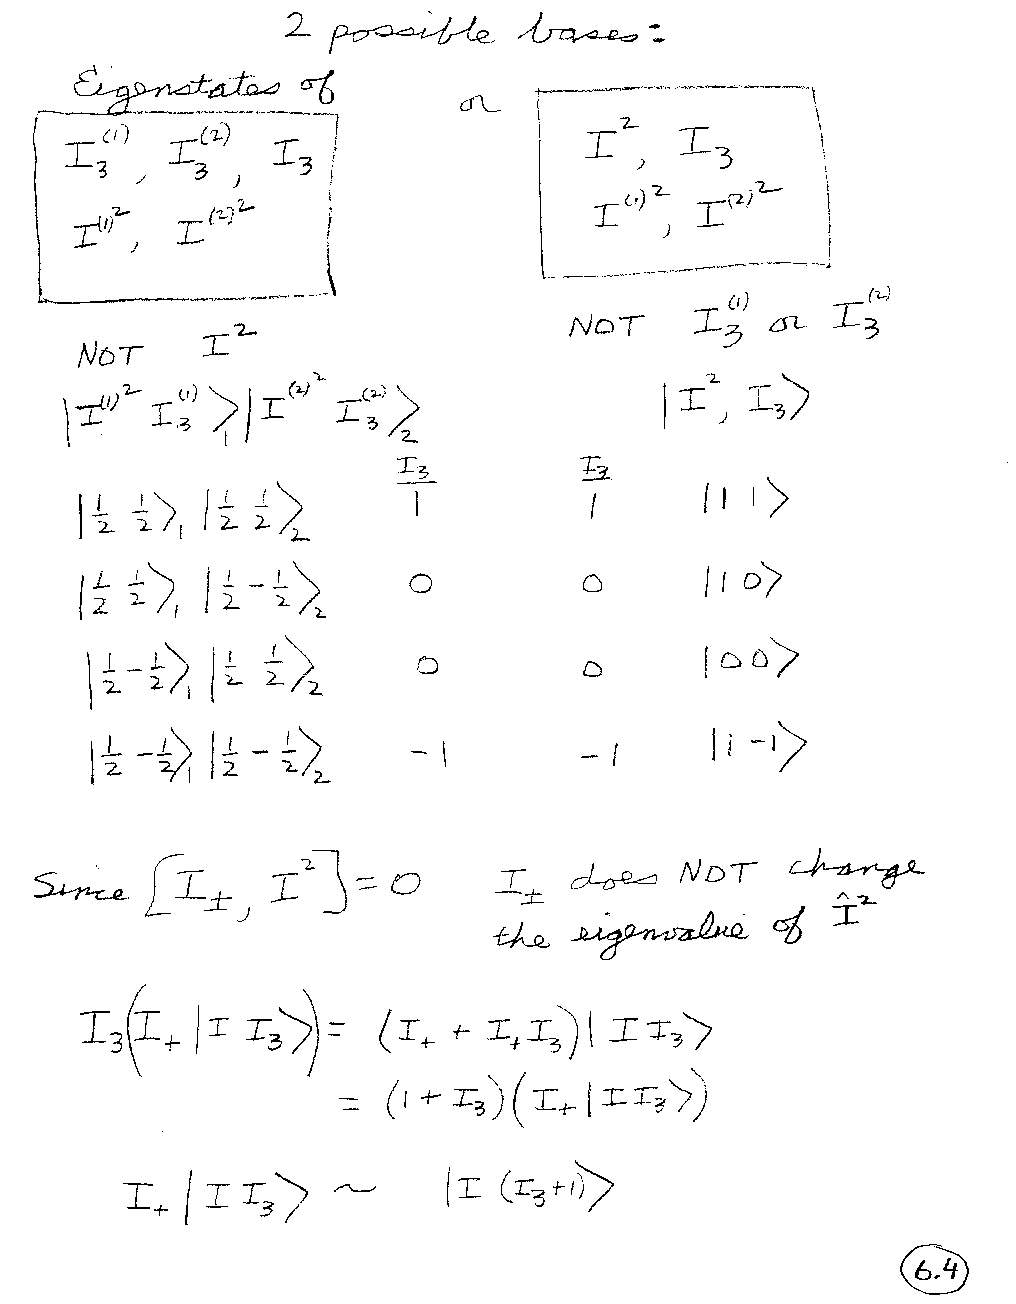 2 possible bases:
Eigenstates of or
I₃⁽¹⁾, I₃⁽²⁾, I₃
I⁽¹⁾², I⁽²⁾²
I², I₃
I⁽¹⁾², I⁽²⁾²
NOT I²
NOT I₃⁽¹⁾ or I₃⁽²⁾
|I⁽¹⁾² I₃⁽¹⁾⟩₁|I⁽²⁾² I₃⁽²⁾⟩₂ |I², I₃⟩
I₃ I₃
|½ ½⟩₁ |½ ½⟩₂ 1 1 |1 1⟩
|½ ½⟩₁ |½ -½⟩₂ 0 0 |1 0⟩
|½ -½⟩₁ |½ ½⟩₂ 0 0 |0 0⟩
|½ -½⟩₁ |½ -½⟩₂ -1 -1 |1 -1⟩
Since [I±, I²] = 0 I± does NOT change
the eigenvalue of Î²
I₃(I₊|I I₃⟩) = (I₊ + I₊I₃)|I I₃⟩
= (1 + I₃)(I₊|I I₃⟩)
I₊|I I₃⟩ ~ |I (I₃+1)⟩
6.4